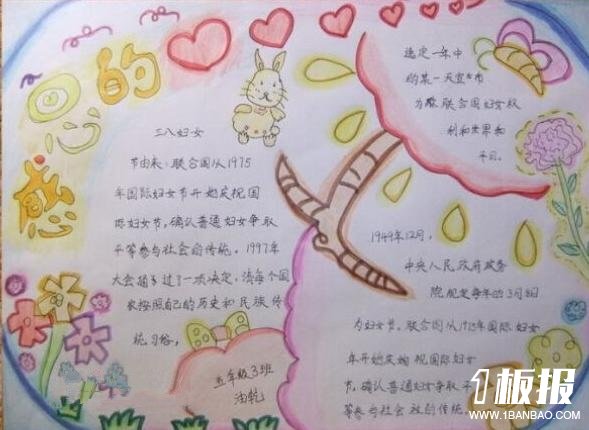 感恩的
三八妇女
节由来:联合国从1975
年国际妇女节开始庆祝国
际妇女节,确认普通妇女争取
平等参与社会的传统。1997年
大会通过了一项决定,请每个国
家按照自己的历史和民族传
统习俗,
选定一年中
的某一天宣布
为 联合国妇女权
利和世界和
平日。
1949年12月,
中央人民政府政务
院规定每年的3月8日
为妇女节。联合国从1975年国际妇女
年开始庆祝国际妇女
节,确认普通妇女争取平
等参与社会 的传统
五年级3班
1板报
WWW.1BANBAO.COM